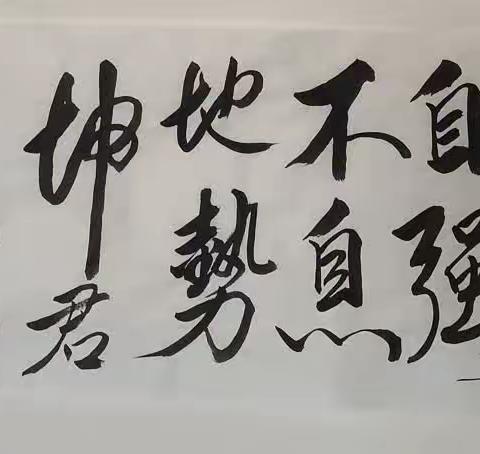 自强
不息
地勢
坤君